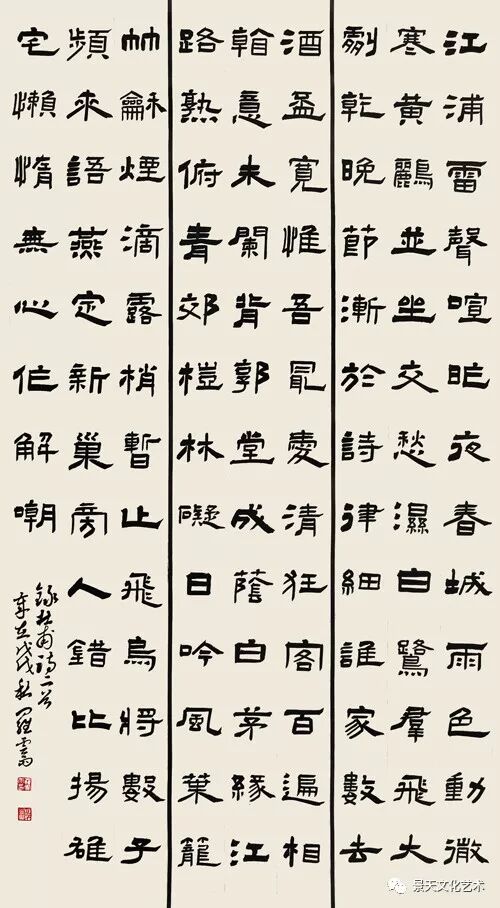 江浦雷聲喧昨夜春城雨色動微
寒黃鸝並坐交愁濕白鷺羣飛大
劇乾晚節漸於詩律細誰家數去
酒盃寬惟吾最愛清狂客百遍相
看意未闌背郭堂成蔭白茅緣江
路熟俯青郊榿林礙日吟風葉籠
竹龢煙滴露梢暫止飛烏將數子
頻來語燕定新巢旁人錯比揚雄
宅懶惰無心作解嘲
錄杜甫詩二首
歲在戊戌秋
景天文化艺术